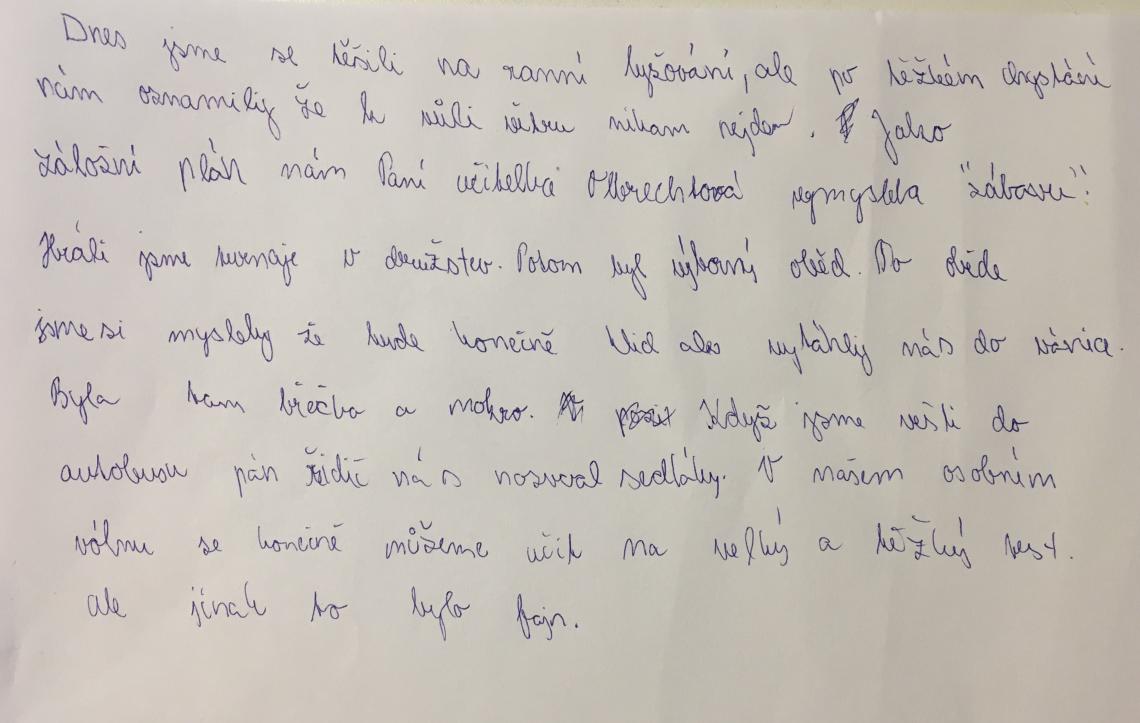 Dnes jsme se těšili na ranní lyžování, ale po těžkém chystání
nám oznamily že k vůli větru nikam nejdem. Jako
záložní plán nám Paní učitelka Olbrechtová vymyslela "zábavu":
Hráli jsme turnaje v družstev. Potom byl výborný oběd. Po oběde
jsme si myslely že bude konečně klid ale vytáhly nás do vánice.
Byla tam břečka a mokro. Když jsme vešli do
autobusu pán řidič nás nazval sedláky. V našem osobním
vólnu se konečně můžeme učit na velký a těžký test.
ale jinak to bylo fajn.